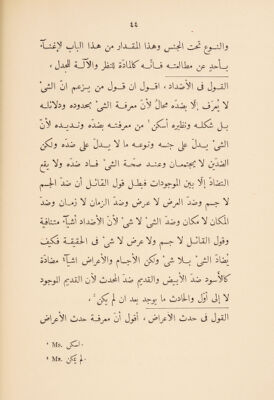 ٤٤
والنوع تحت الجنس وهذا المقدار من هذا الباب لا غناء
بأحد عن مطالعته فانه كالمادّة للنظر والآلة للجدل،
القول فى الأضداد، اقول ان قول من يزعم انّ الشئ
لا يُعرَف إلّا بضدّه محالٌ لأنّ معرفة الشئ بحدوده ودلائله
بل شكله ونظيره أسكن¹ من معرفته بضدّه ونديده لأنّ
الشئ يدلّ على جنسه ونوعه ما لا يدلّ على ضدّه ولكن
الضدّين لا يجتمعان وعند صحّة الشئ فساد ضدّه ولا يقع
التضادّ إلّا بين الموجودات فبطل قول القائل أن ضدّ الجسم
لا جسم وضدّ العرض لا عرض وضدّ الزمان لا زمان وضدّ
المكان لا مكان وضدّ الشئ لا شئ لأنّ الأضداد أشيآء متنافية
وقول القائل لا جسم ولا عرض لا شئ فى الحقيقة فكيف
يُضادّ الشئ بلا شئ ولكن الأجسام والأعراض أشيآء مضادّة
كالأسود ضدّ الأبيض والقديم ضدّ المحدث لأنّ القديم الموجود
لا إلى أوّل والحادث ما يوجد بعد ان لم يكن²،
القول فى حدث الأعراض، أقول أنّ معرفة حدث الأعراض
¹ Ms. اسكى.
² Ms. لم يمكن.